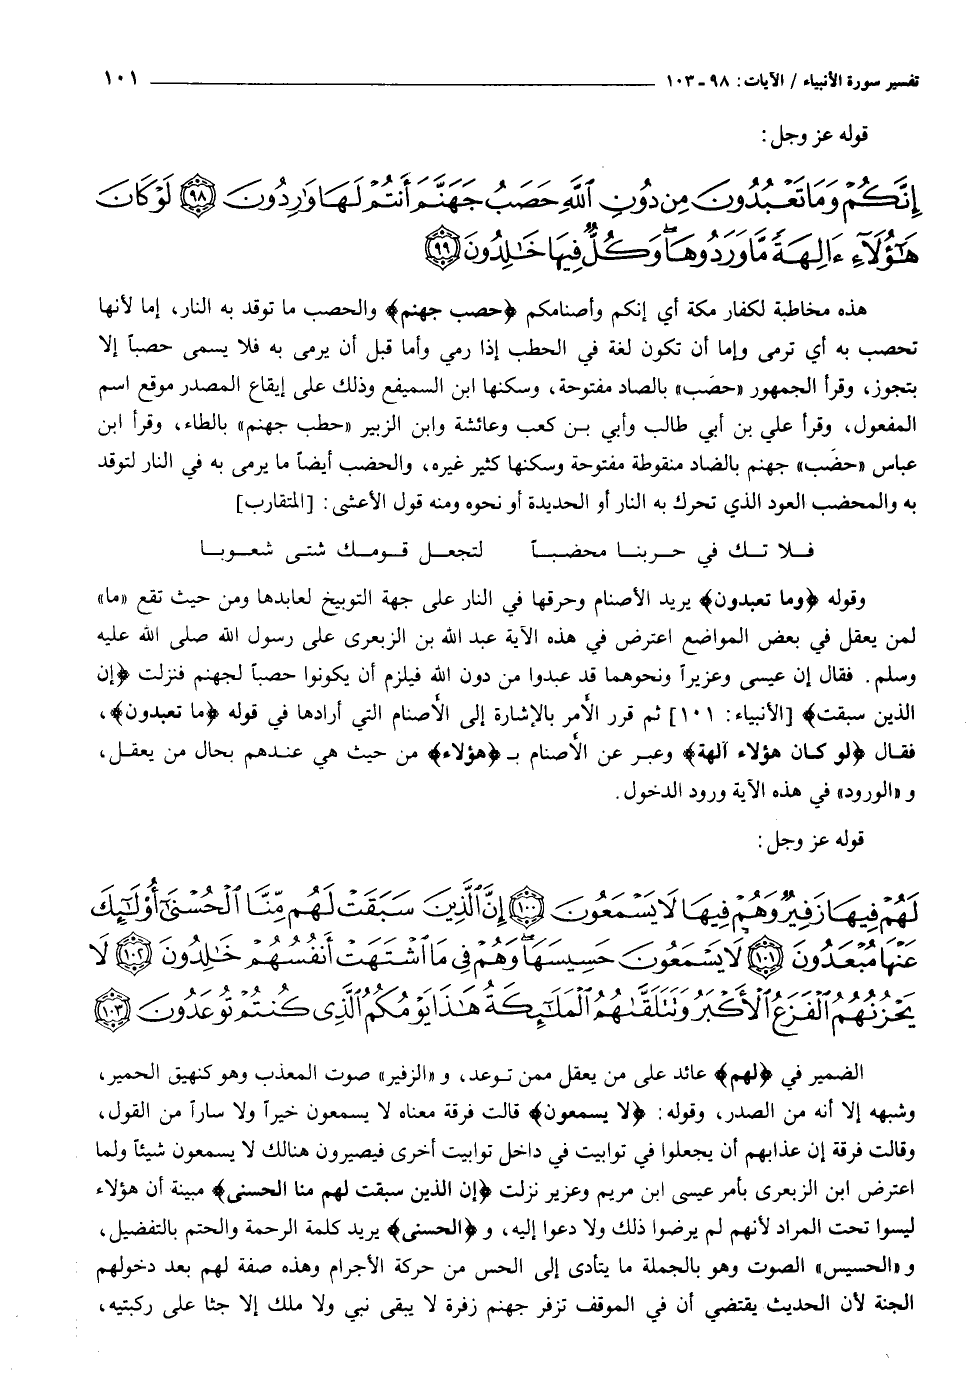 تفسير سورة الأنبياء / الآيات: ٩٨ - ١٠٣ ـــــــــ ١٠١
قوله عز وجل:
إِنَّكُمْ وَمَا تَعْبُدُونَ مِن دُونِ ٱللَّهِ حَصَبُ جَهَنَّمَ أَنتُمْ لَهَا وَٰرِدُونَ ﴿٩٨﴾ لَوْ كَانَ
هَٰٓؤُلَآءِ ءَالِهَةً مَّا وَرَدُوهَا ۖ وَكُلٌّ فِيهَا خَٰلِدُونَ ﴿٩٩﴾
هذه مخاطبة لكفار مكة أي إنكم وأصنامكم ﴿حصب جهنم﴾ والحصب ما توقد به النار، إما لأنها
تحصب به أي ترمى وإما أن تكون لغة في الحطب إذا رمي وأما قبل أن يرمى به فلا يسمى حصباً إلا
بتجوز، وقرأ الجمهور «حصَب» بالصاد مفتوحة، وسكنها ابن السميفع وذلك على إيقاع المصدر موقع اسم
المفعول، وقرأ علي بن أبي طالب وأبي بـن كعب وعائشة وابن الزبير «حطب جهنم» بالطاء، وقرأ ابن
عباس «حضَب» جهنم بالضاد منقوطة مفتوحة وسكنها كثير غيره، والحضب أيضاً ما يرمى به في النار لتوقد
به والمحضب العود الذي تحرك به النار أو الحديدة أو نحوه ومنه قول الأعشى: [المتقارب]
فـلا تـك في حـربنـا محضبـاً لتجعـل قـومـك شتـى شعـوبـا
وقوله ﴿وما تعبدون﴾ يريد الأصنام وحرقها في النار على جهة التوبيخ لعابدها ومن حيث تقع «ما»
لمن يعقل في بعض المواضع اعترض في هذه الآية عبد الله بن الزبعرى على رسول الله صلى الله عليه
وسلم. فقال إن عيسى وعزيراً ونحوهما قد عبدوا من دون الله فيلزم أن يكونوا حصباً لجهنم فنزلت ﴿إن
الذين سبقت﴾ [الأنبياء: ١٠١] ثم قرر الأمر بالإشارة إلى الأصنام التي أرادها في قوله ﴿ما تعبدون﴾،
فقال ﴿لو كان هؤلاء آلهة﴾ وعبر عن الأصنام بـ ﴿هؤلاء﴾ من حيث هي عندهم بحال من يعقل،
و «الورود» في هذه الآية ورود الدخول.
قوله عز وجل:
لَهُمْ فِيهَا زَفِيرٌ وَهُمْ فِيهَا لَا يَسْمَعُونَ ﴿١٠٠﴾ إِنَّ ٱلَّذِينَ سَبَقَتْ لَهُم مِّنَّا ٱلْحُسْنَىٰٓ أُوْلَٰٓئِكَ
عَنْهَا مُبْعَدُونَ ﴿١٠١﴾ لَا يَسْمَعُونَ حَسِيسَهَا ۖ وَهُمْ فِى مَا ٱشْتَهَتْ أَنفُسُهُمْ خَٰلِدُونَ ﴿١٠٢﴾ لَا
يَحْزُنُهُمُ ٱلْفَزَعُ ٱلْأَكْبَرُ وَتَتَلَقَّىٰهُمُ ٱلْمَلَٰٓئِكَةُ هَٰذَا يَوْمُكُمُ ٱلَّذِى كُنتُمْ تُوعَدُونَ ﴿١٠٣﴾
الضمير في ﴿لهم﴾ عائد على من يعقل ممن توعد، و «الزفير» صوت المعذب وهو كنهيق الحمير،
وشبهه إلا أنه من الصدر، وقوله: ﴿لا يسمعون﴾ قالت فرقة معناه لا يسمعون خيراً ولا ساراً من القول،
وقالت فرقة إن عذابهم أن يجعلوا في توابيت في داخل توابيت أخرى فيصيرون هنالك لا يسمعون شيئاً ولما
اعترض ابن الزبعرى بأمر عيسى ابن مريم وعزير نزلت ﴿إن الذين سبقت لهم منا الحسنى﴾ مبينة أن هؤلاء
ليسوا تحت المراد لأنهم لم يرضوا ذلك ولا دعوا إليه، و ﴿الحسنى﴾ يريد كلمة الرحمة والحتم بالتفضيل،
و «الحسيس» الصوت وهو بالجملة ما يتأدى إلى الحس من حركة الأجرام وهذه صفة لهم بعد دخولهم
الجنة لأن الحديث يقتضي أن في الموقف تزفر جهنم زفرة لا يبقى نبي ولا ملك إلا جثا على ركبتيه،